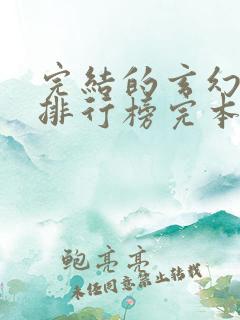 完结的玄幻
排行榜完本
鲍亮亮
未经同意禁止转载